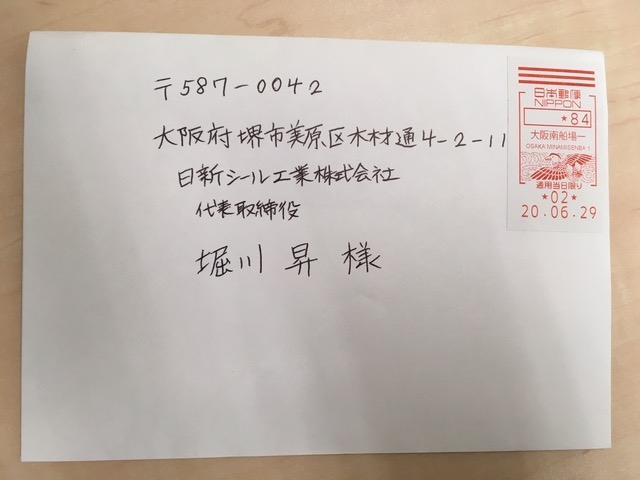 〒587-0042
大阪府堺市美原区木材通4-2-11
日新シール工業株式会社
代表取締役
堀川 昇 様
日本郵便
NIPPON
★84
大阪南船場一
OSAKA MINAMISENBA 1
適用当日限り
★02★
20.06.29